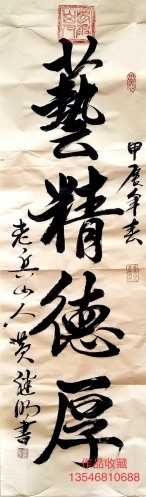 藝精德厚
甲辰年春
老兵山人黄继明書
作品收藏
13546810688